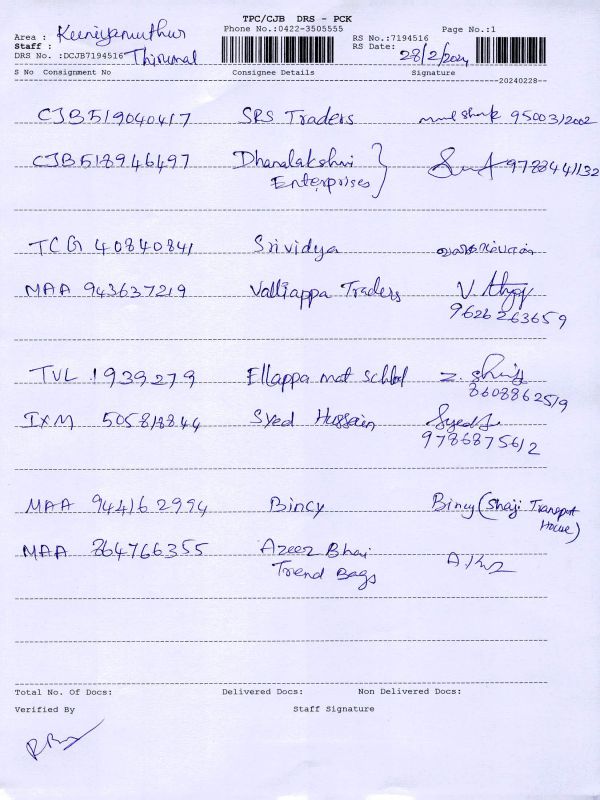 TPC/CJB DRS - PCK
Area : Kuniyamuthur Phone No.:0422-3505555 RS No.:7194516 Page No.:1
Staff : Thirumal RS Date: 28/2/2024
DRS No. :DCJB7194516
S No Consignment No Consignee Details Signature
20240228
CJB519040417 SRS Traders 9500312002
CJB518946497 Dhanalakshmi 9788441132
Enterprises
TCG 40840841 Srividya
MAA 943637219 Valliappa Traders
9626263659
TVL 1939279 Ellappa mat school
8608862519
IXM 505818844 Syed Hussain Syed
9786875612
MAA 944162994 Bincy Bincy (Shaji Transport
House)
MAA 864766355 Azeez Bhai
Trend Bags
Total No. Of Docs: Delivered Docs: Non Delivered Docs:
Verified By Staff Signature